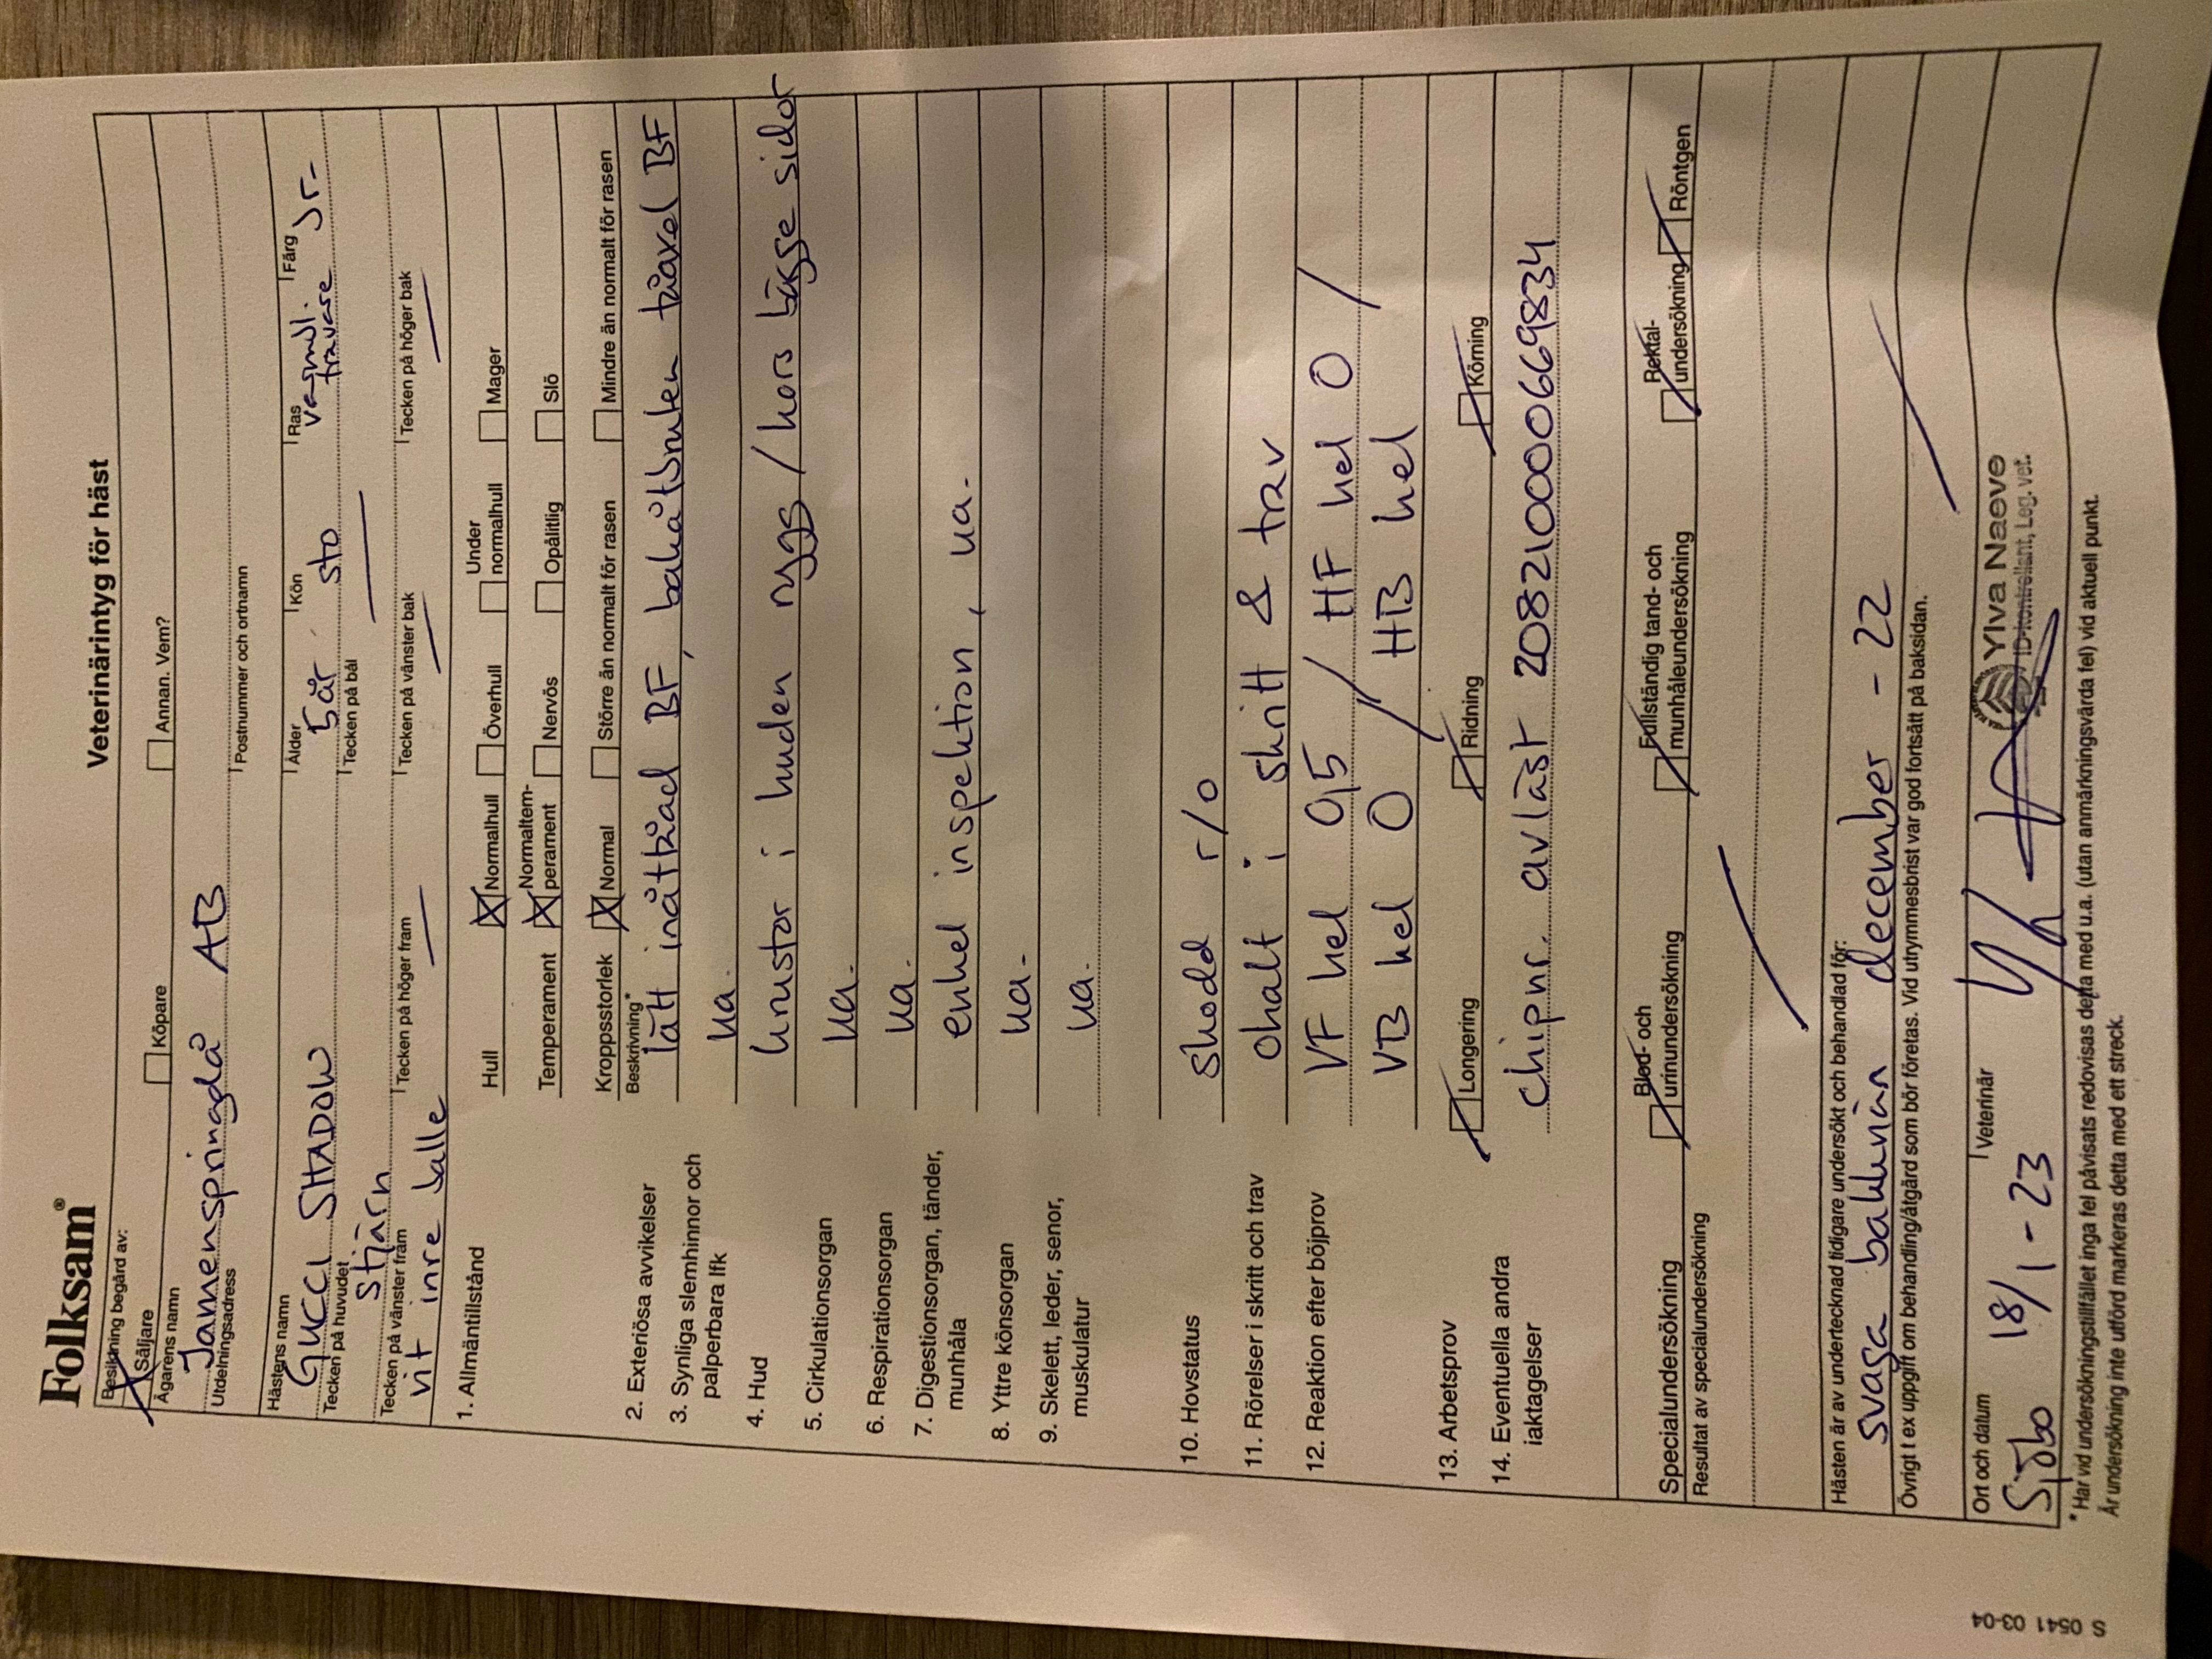 Folksam®
Veterinärintyg för häst
Besiktning begärd av:
Säljare Köpare Annan. Vem?
Ägarens namn
Jamenspringdå AB
Utdelningsadress Postnummer och ortnamn
Hästens namn Ålder Kön Ras Färg
GUCCI SHADOW 5år sto varmbl. travare br-
Tecken på huvudet Tecken på bål
Stjärn
Tecken på vänster fram Tecken på höger fram Tecken på vänster bak Tecken på höger bak
vit inre balle
1. Allmäntillstånd
Hull Normalhull Överhull Under normalhull Mager
Temperament Normaltemperament Nervös Opålitlig Slö
Kroppsstorlek Normal Större än normalt för rasen Mindre än normalt för rasen
Beskrivning*
2. Exteriösa avvikelser lätt inåttåad BF, bakåtbruten tåaxel BF
3. Synliga slemhinnor och palperbara lfk ua.
4. Hud krustor i huden rygg / kors bägge sidor
5. Cirkulationsorgan ua.
6. Respirationsorgan ua.
7. Digestionsorgan, tänder, munhåla enkel inspektion, ua.
8. Yttre könsorgan ua.
9. Skelett, leder, senor, muskulatur ua.
10. Hovstatus skodd r/o
11. Rörelser i skritt och trav ohalt i skritt & trav
12. Reaktion efter böjprov VF hel 0,5 / HF hel 0 /
VB hel 0 / HB hel
13. Arbetsprov Longering Ridning Körning
14. Eventuella andra iaktagelser chipnr. avläst 208210000669834
Specialundersökning Blod- och urinundersökning Fullständig tand- och munhåleundersökning Rektal-undersökning Röntgen
Resultat av specialundersökning
Hästen är av undertecknad tidigare undersökt och behandlad för:
svaga bakknän december - 22
Övrigt t ex uppgift om behandling/åtgärd som bör företas. Vid utrymmesbrist var god fortsätt på baksidan.
Ort och datum Veterinär
Sjöbo 18/1 - 23
Ylva Naeve
ID-kontrollant, Leg. vet.
* Har vid undersökningstillfället inga fel påvisats redovisas detta med u.a. (utan anmärkningsvärda fel) vid aktuell punkt.
Är undersökning inte utförd markeras detta med ett streck.
S 0541 03-04